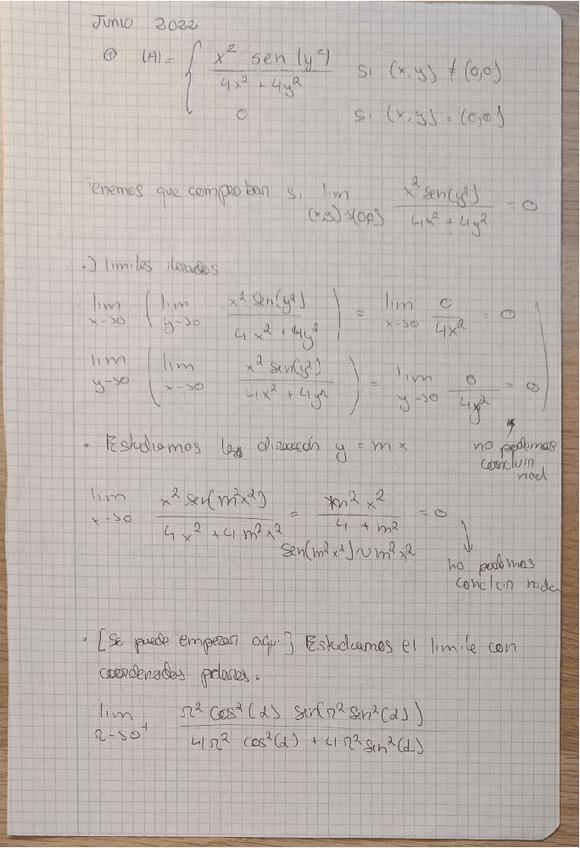 Junio 2022
① (A) = { x² sen(y²) / 4x² + 4y² si (x,y) ≠ (0,0)
0 si (x,y) = (0,0)
Tenemos que comprobar si lim (x,y)->(0,0) x² sen(y²) / 4x² + 4y² = 0
·) limites iterados
lim x->0 ( lim y->0 x² sen(y²) / 4x² + 4y² ) = lim x->0 0 / 4x² = 0
lim y->0 ( lim x->0 x² sen(y²) / 4x² + 4y² ) = lim y->0 0 / 4y² = 0
· Estudiamos la dirección y = mx
no podemos
concluir
nad
lim x->0 x² sen(m²x²) / 4x² + 4m²x² = m² x² / 4 + m² = 0
sen(m²x²) ~ m²x²
no podemos
concluir nada
· [Se puede empezar aquí] Estudiamos el limite con
coordenadas polares.
lim r->0⁺ r² cos²(α) sen(r² sen²(α)) / 4r² cos²(α) + 4r² sen²(α)